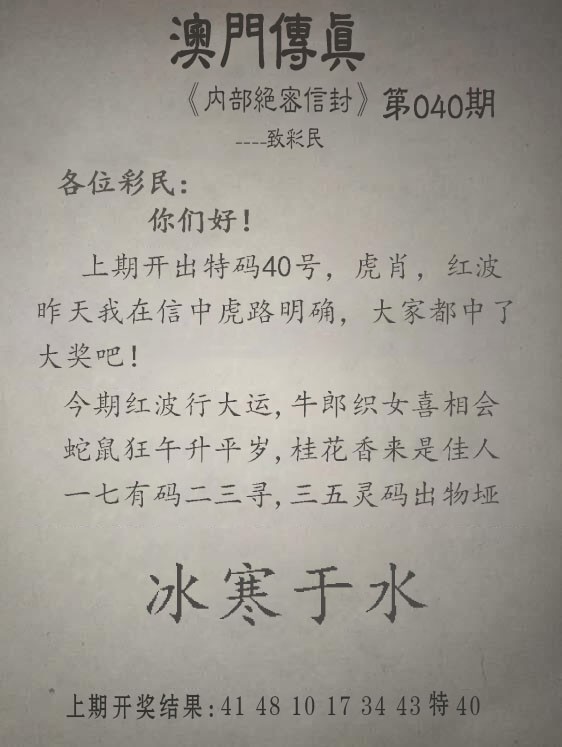 澳門傳眞
《内部絕密信封》第040期
----致彩民
各位彩民:
你们好!
上期开出特码40号，虎肖，红波
昨天我在信中虎路明确，大家都中了
大奖吧!
今期红波行大运,牛郎织女喜相会
蛇鼠狂午升平岁,桂花香来是佳人
一七有码二三寻,三五灵码出物垭
冰寒于水
上期开奖结果:41 48 10 17 34 43 特 40